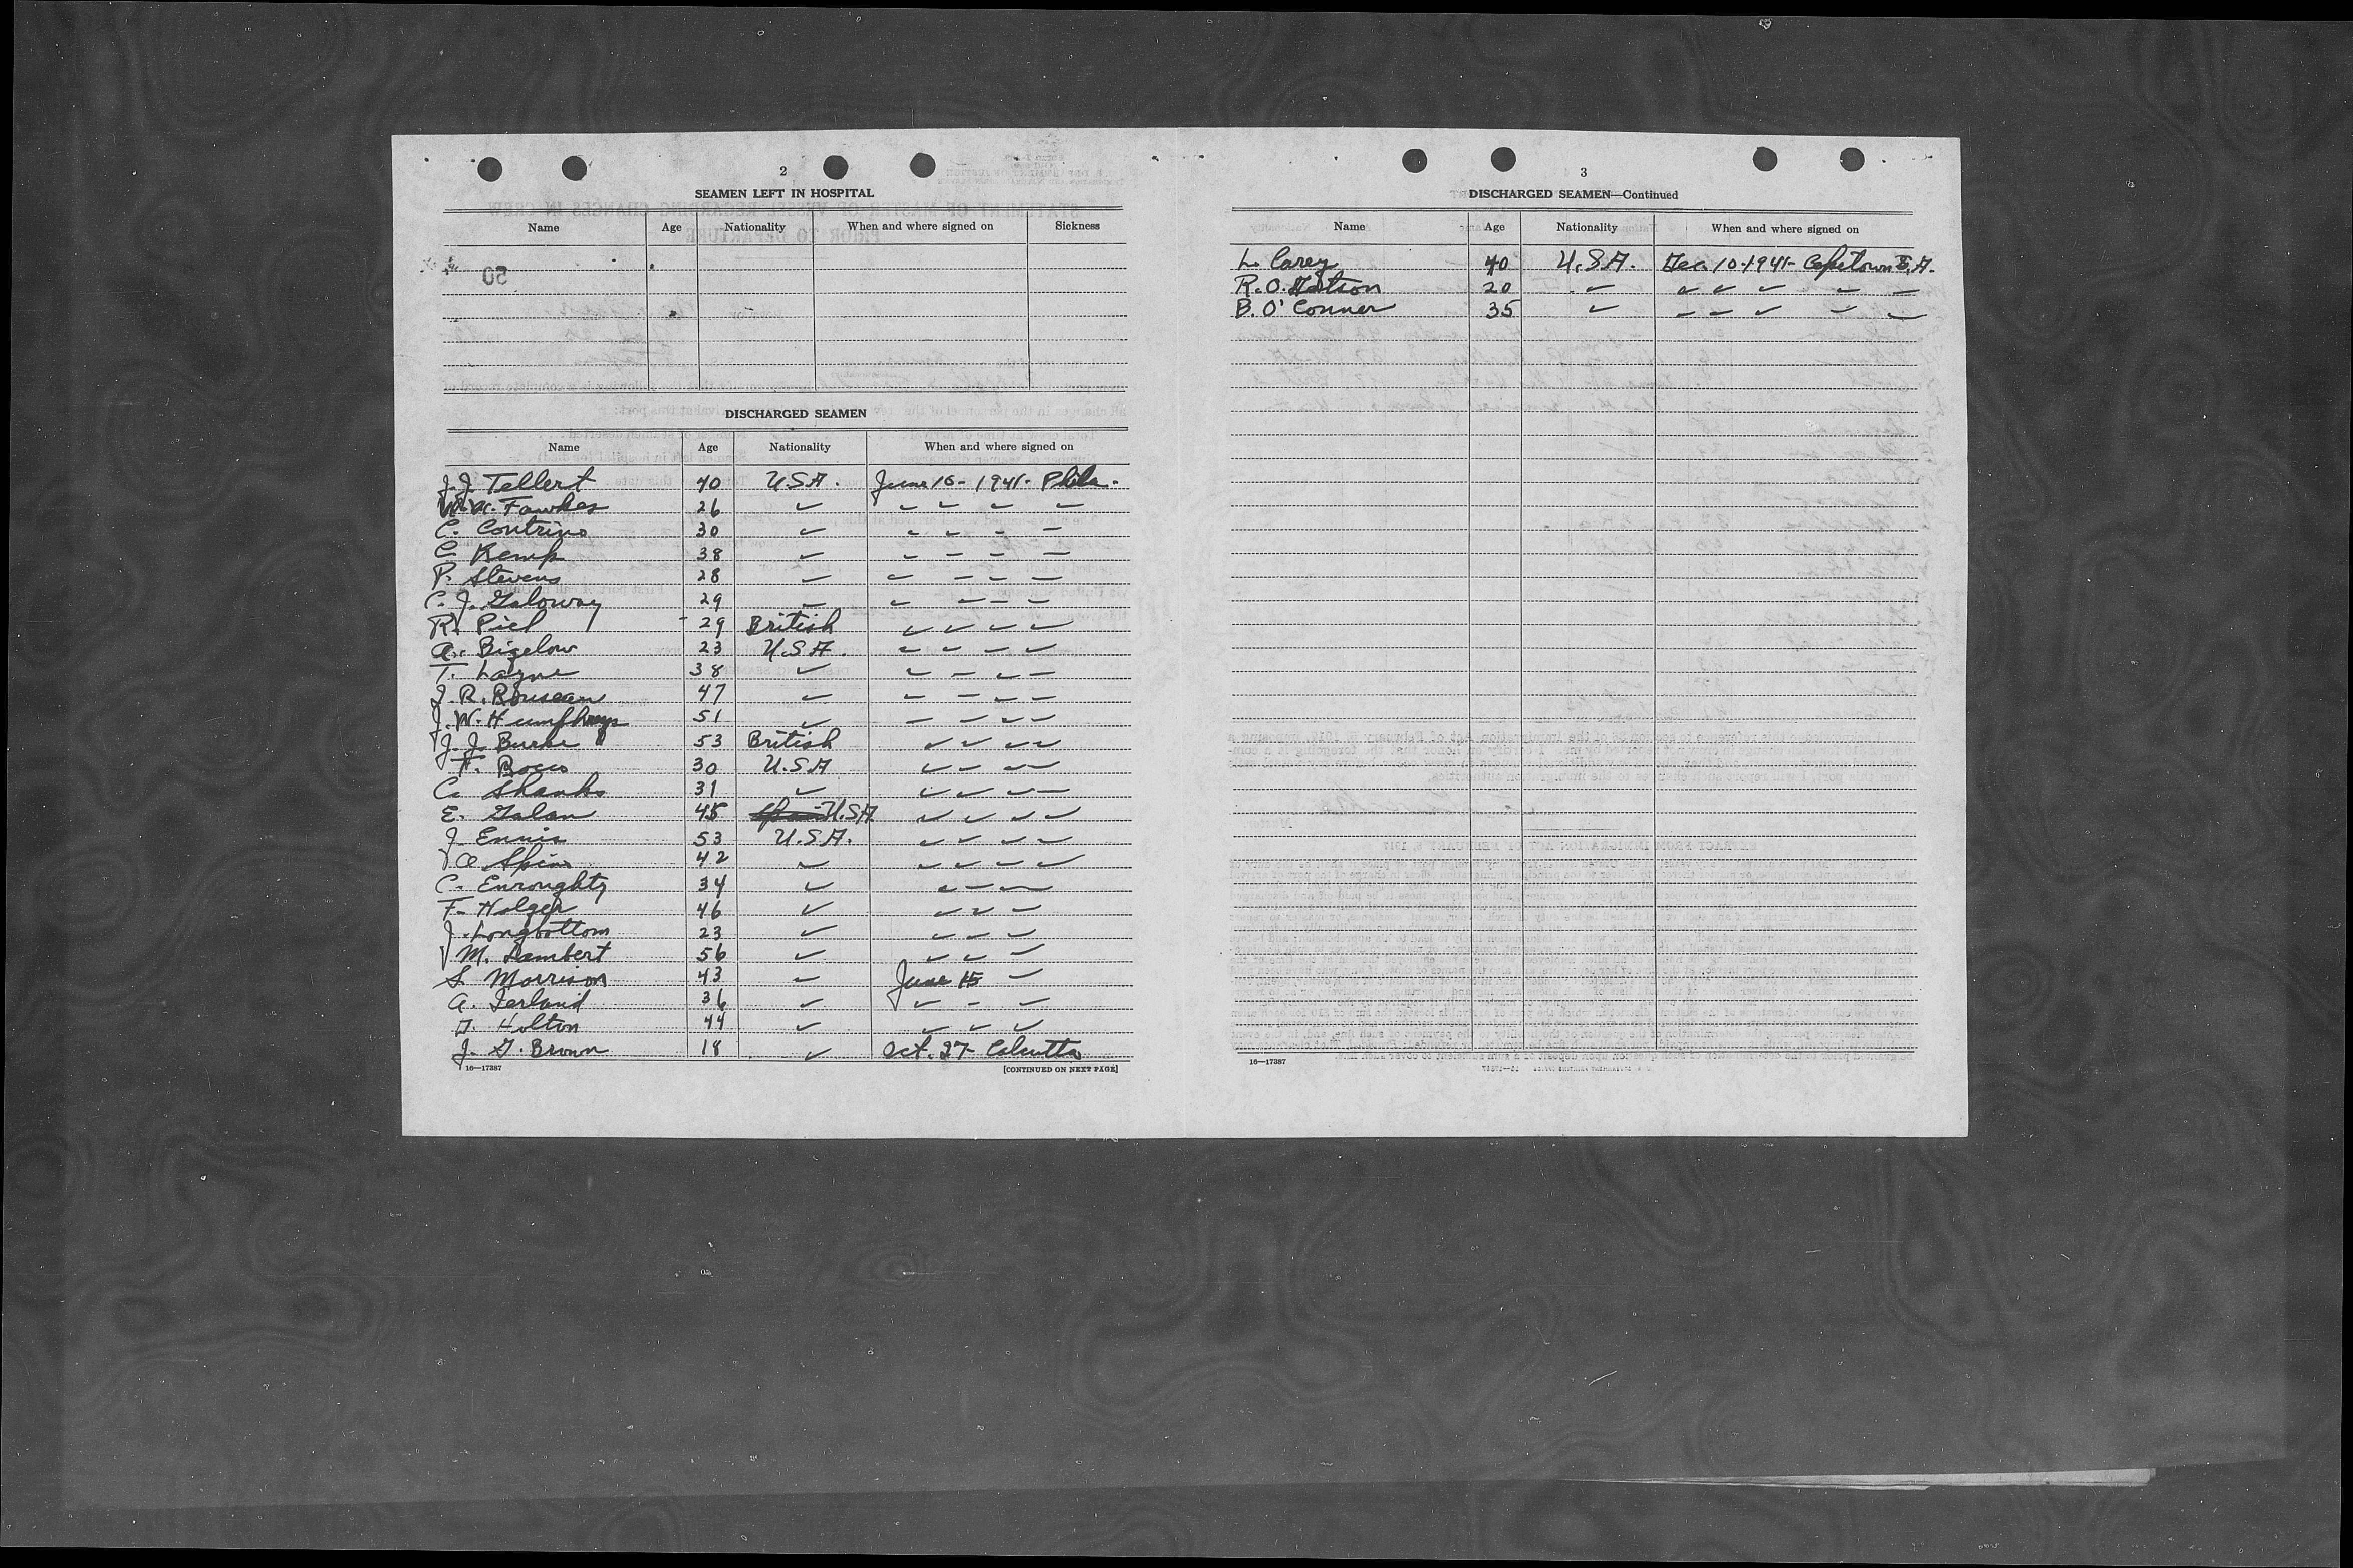 2
SEAMEN LEFT IN HOSPITAL
Name Age Nationality When and where signed on Sickness
DISCHARGED SEAMEN
Name Age Nationality When and where signed on
J. J. Tellert 40 U.S.A. June 16-1941- Phila.
Fawkes 26 ✓
C. Contrino 30 ✓
C Kemp 38 ✓
P. Stevens 28 ✓
C. J. Galoway 29 ✓
R. Piel 29 British
A. Bigelow 23 U.S.A.
T. Layne 38 ✓
J. R. Rouseau 47 ✓
J. W. Humphreys 51 ✓
J. J. Burke 53 British
F. Bocco 30 U.S.A
C. Shanks 31 ✓
E. Galan 45 U.S.A.
J Ennis 53 U.S.A.
42 ✓
C. Enroughty 34 ✓
F. Holger 46 ✓
J. Longbottom 23 ✓
M. Lambert 56 ✓
S. Morrison 43 ✓ June 15
A. Ferland 36 ✓
Holton 44 ✓
J. G. Brown 18 ✓ Oct. 27- Calcutta
16—17387 [CONTINUED ON NEXT PAGE]
3
DISCHARGED SEAMEN—Continued
Name Age Nationality When and where signed on
L. Carey 40 U.S.A. Dec. 10-1941- Capetown S.A.
R. O. 20 ✓
B. O'Conner 35 ✓
16—17387